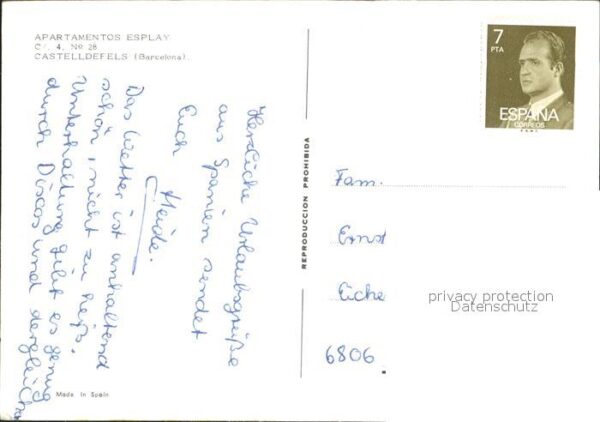 APARTAMENTOS ESPLAY
C/. 4, Nº 28
CASTELLDEFELS (Barcelona)
Herzliche Urlaubsgrüße
aus Spanien sendet
Euch
Heide.
Das Wetter ist anhaltend
schön, nicht zu heiß.
Unterhaltung gibt es genug
durch Discos und dergleichen
Made in Spain
REPRODUCCION PROHIBIDA
7
PTA
ESPAÑA
CORREOS
Fam.
Ernst
Eiche
6806
privacy protection
Datenschutz